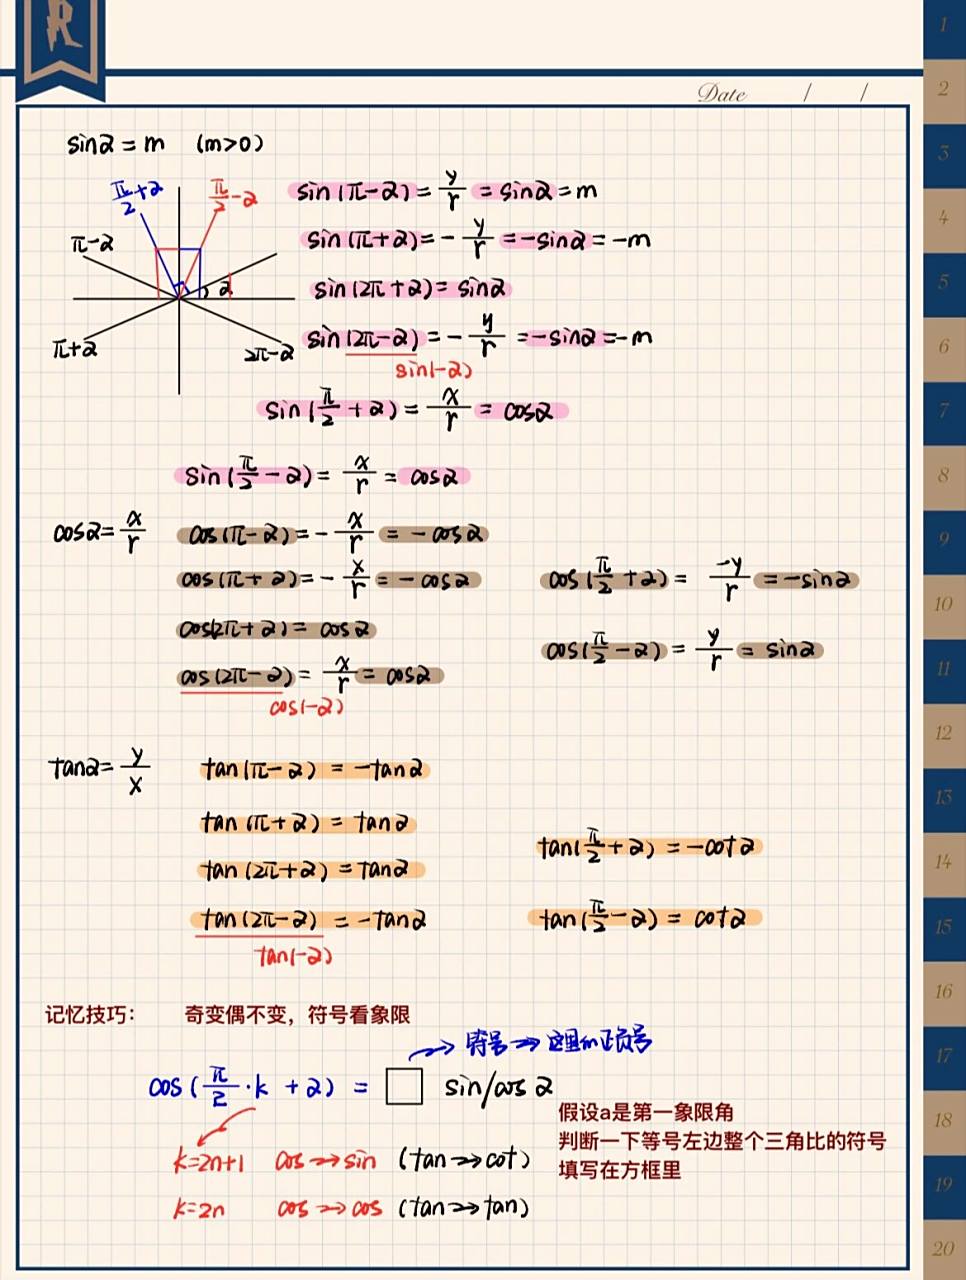 Date / /
sinα = m (m>0)
π/2+α
π/2-α
π-α
α
π+α
2π-α
sin(π-α) = y/r = sinα = m
sin(π+α) = - y/r = -sinα = -m
sin(2π+α) = sinα
sin(2π-α) = - y/r = -sinα = -m
sin(-α)
sin(π/2+α) = x/r = cosα
sin(π/2-α) = x/r = cosα
cosα = x/r
cos(π-α) = - x/r = -cosα
cos(π+α) = - x/r = -cosα
cos(2π+α) = cosα
cos(2π-α) = x/r = cosα
cos(-α)
cos(π/2+α) = -y/r = -sinα
cos(π/2-α) = y/r = sinα
tanα = y/x
tan(π-α) = -tanα
tan(π+α) = tanα
tan(2π+α) = tanα
tan(2π-α) = -tanα
tan(-α)
tan(π/2+α) = -cotα
tan(π/2-α) = cotα
记忆技巧: 奇变偶不变，符号看象限
符号→这里的正负号
cos(π/2·k+α) = □ sin/cosα
k=2n+1 cos→sin (tan→cot)
k=2n cos→cos (tan→tan)
假设a是第一象限角
判断一下等号左边整个三角比的符号
填写在方框里
1
2
3
4
5
6
7
8
9
10
11
12
13
14
15
16
17
18
19
20